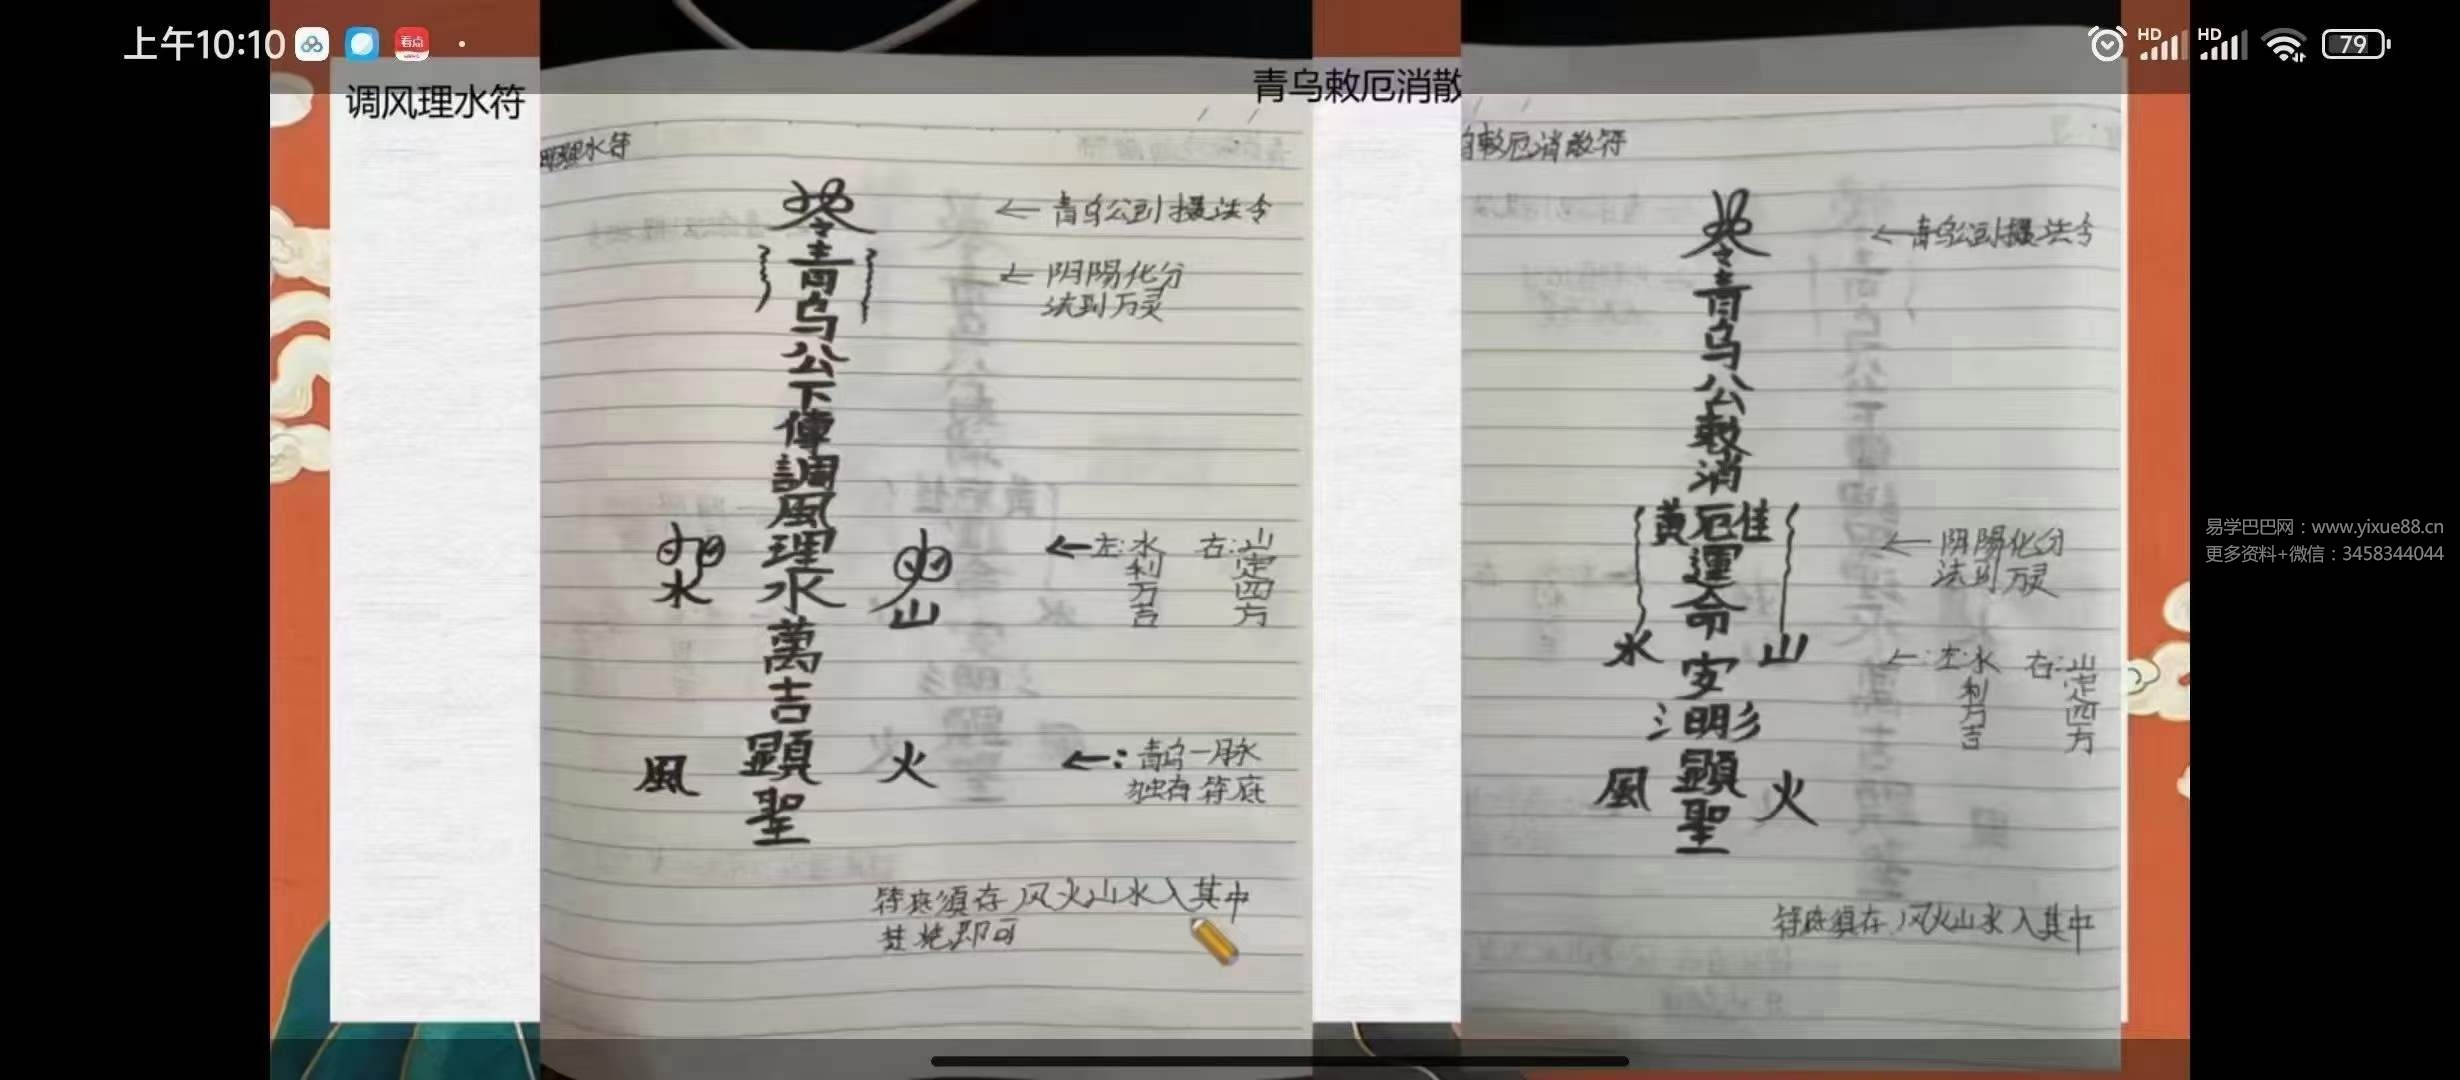 上午10:10
看点
HD
HD
79
调风理水符
理水符
青乌公到摄法令
阴陽化分
法到万灵
青
乌
公
下
傳
調
風
理
水
萬
吉
顕
聖
水
山
風
火
左:水利万吉
右:山定四方
青乌一脉
独有符底
符底須存风火山水入其中
焚烧即可
青乌敕厄消散
敕厄消散符
青乌公到摄法令
青
乌
公
敕
消
黄厄佳
運
命
安
明
顕
聖
水
山
風
火
阴陽化分
法到万灵
左:水利万吉
右:山定四方
符底須存风火山水入其中
易学巴巴网：www.yixue88.cn
更多资料+微信：3458344044